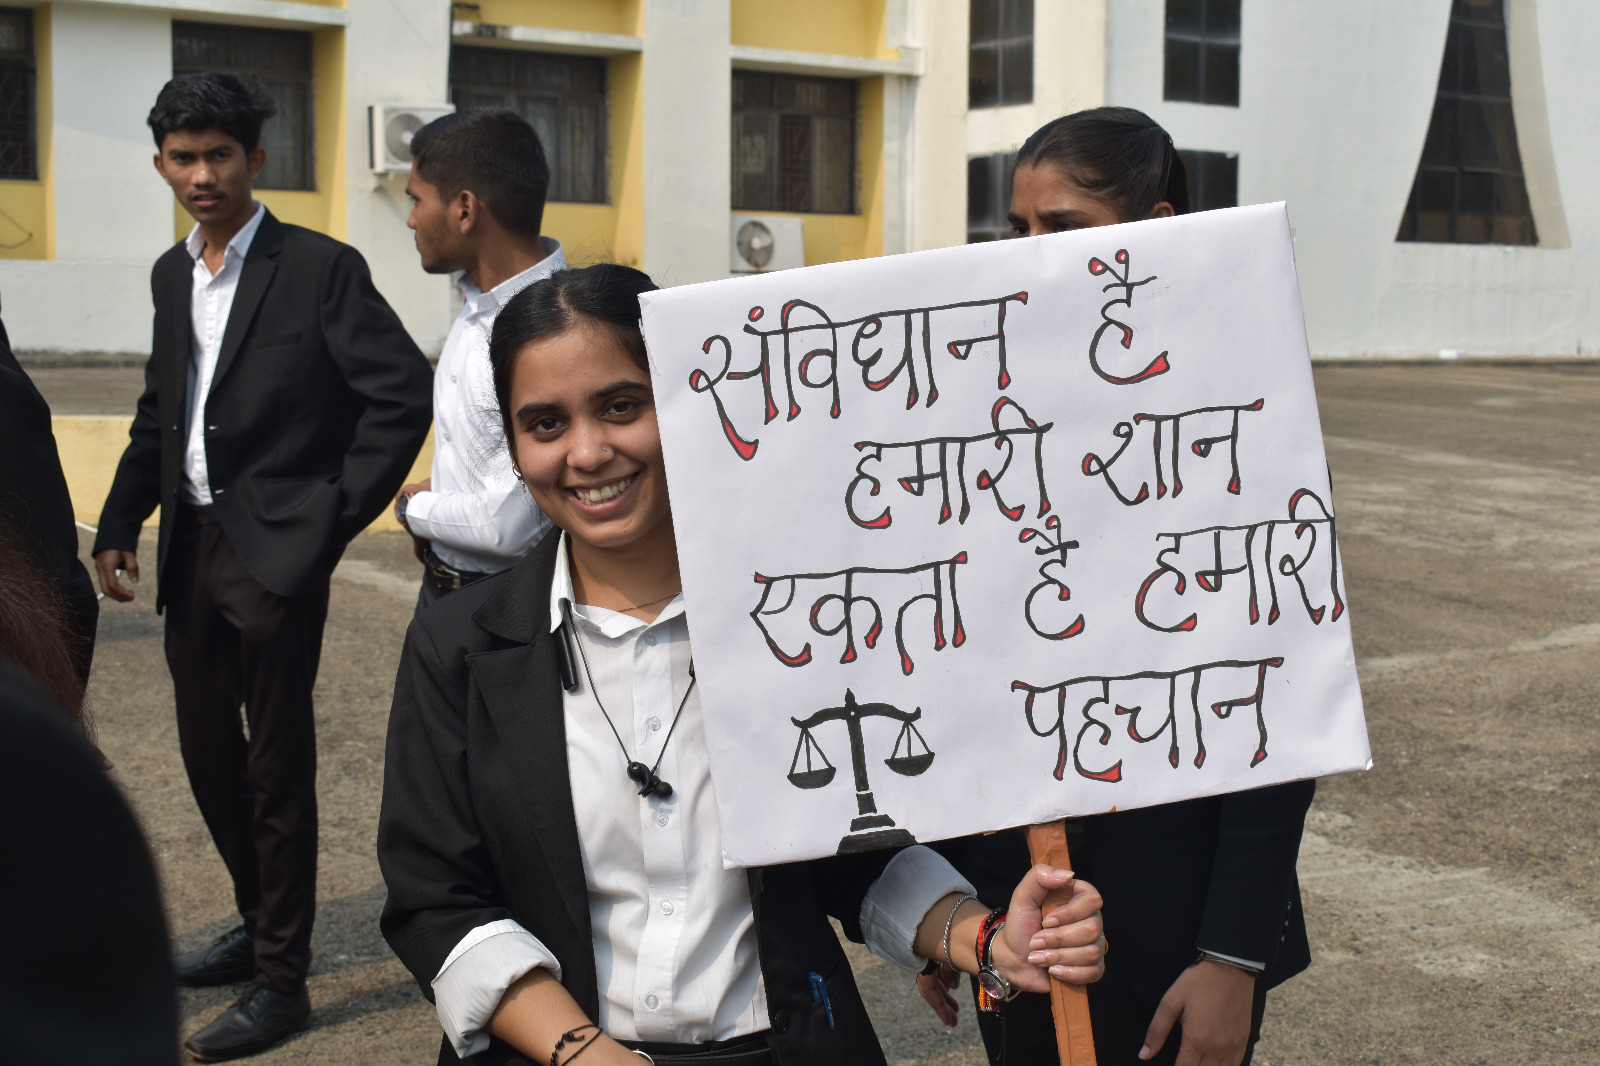 संविधान है
हमारी शान
एकता है हमारी
पहचान